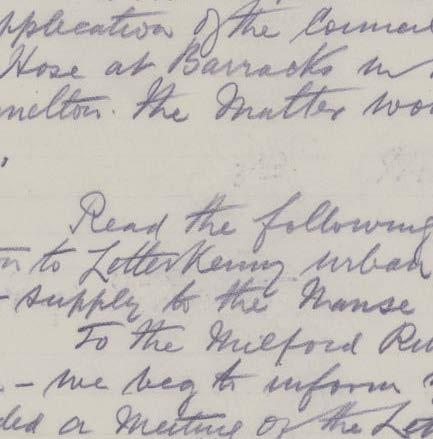 pplication of the Council
Hose at Barracks in
melton. The Matter wou
Read the following
n to Letterkenny urban
- supply to the Manse
To the Milford Ru
- we beg to inform y
ded a Meeting of the Let